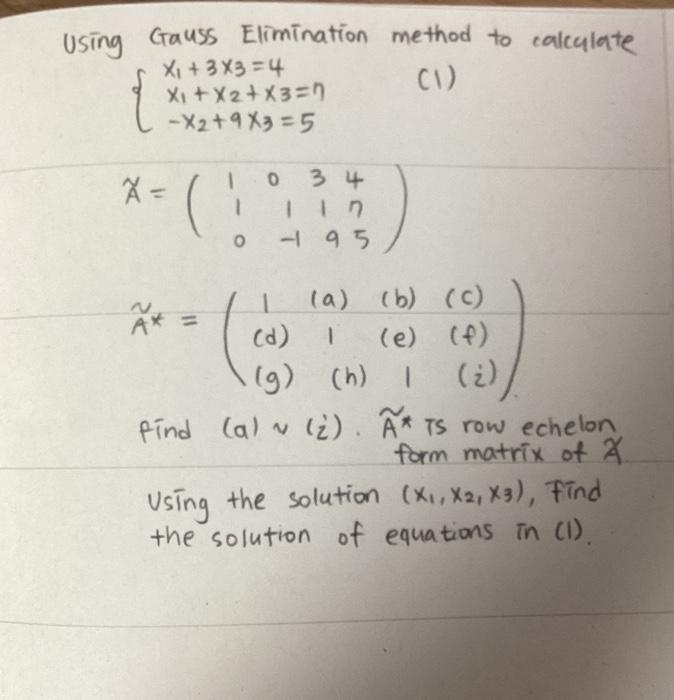 Using Gauss Elimination method to calculate
x₁ + 3x₃ = 4
(1)
x₁ + x₂ + x₃ = 7
-x₂ + 9x₃ = 5
Ã = ( 1 0 3 4
1 1 1 7
0 -1 9 5 )
Ã* = ( 1 (a) (b) (c)
(d) 1 (e) (f)
(g) (h) 1 (i) )
find (a) ~ (i). Ã* is row echelon
form matrix of Ã
Using the solution (x₁, x₂, x₃), find
the solution of equations in (1).